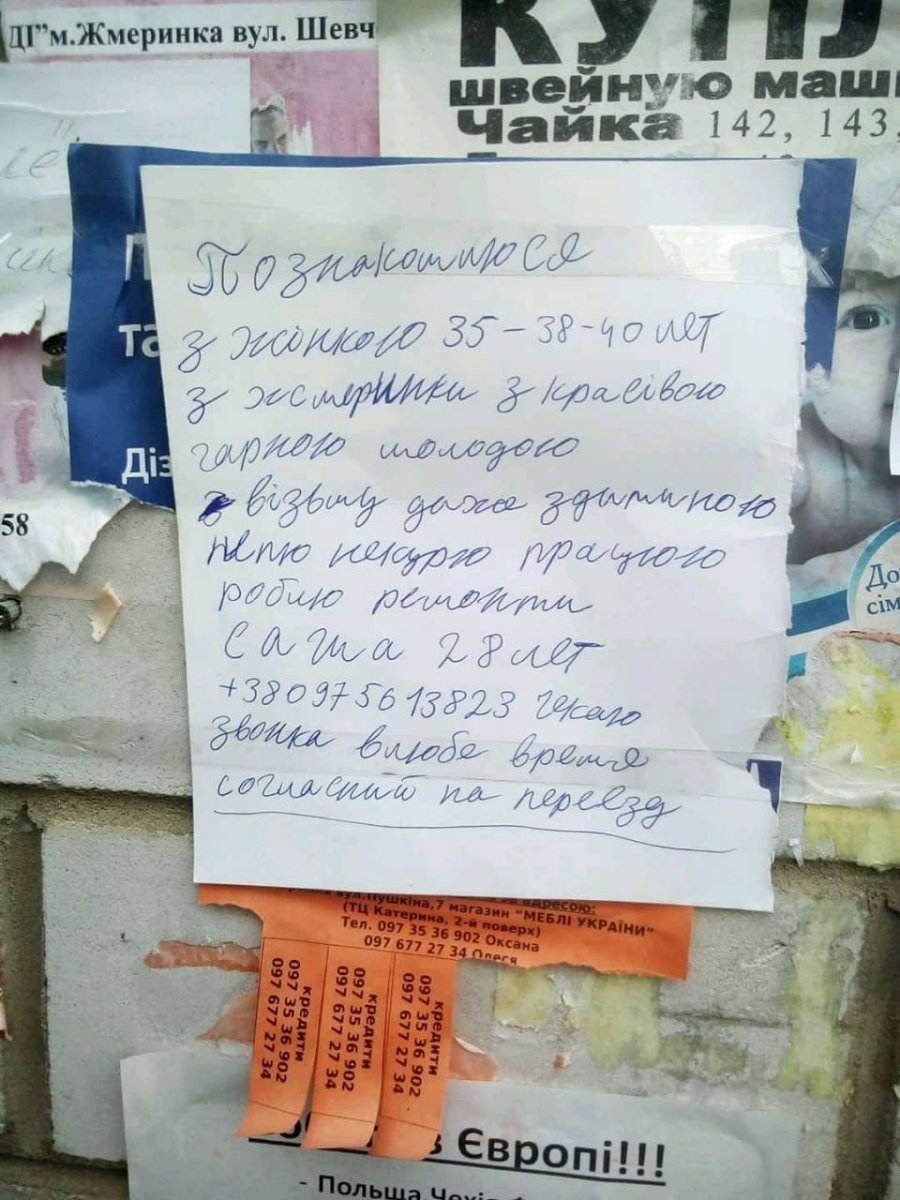 ДІ"м.Жмеринка вул. Шевч
КУПЛ
швейную маши
Чайка 142, 143,
Познакомлюся
з жінкою 35-38-40 лет
з жмеринки з красівою
гарною молодою
візьму даже здытиною
непю некурю працюю
роблю ремонти
Саша 28 лет
+380975613823 чекаю
звонка влюбе время
согласний на переезд
та
Діз
58
До
сім
адресою:
вул.Пушкіна,7 магазин "МЕБЛІ УКРАЇНИ"
(ТЦ Катерина, 2-й поверх)
Тел. 097 35 36 902 Оксана
097 677 27 34 Олеся
кредити
097 35 36 902
097 677 27 34
кредити
097 35 36 902
097 677 27 34
кредити
097 35 36 902
097 677 27 34
в Європі!!!
- Польща Чехія